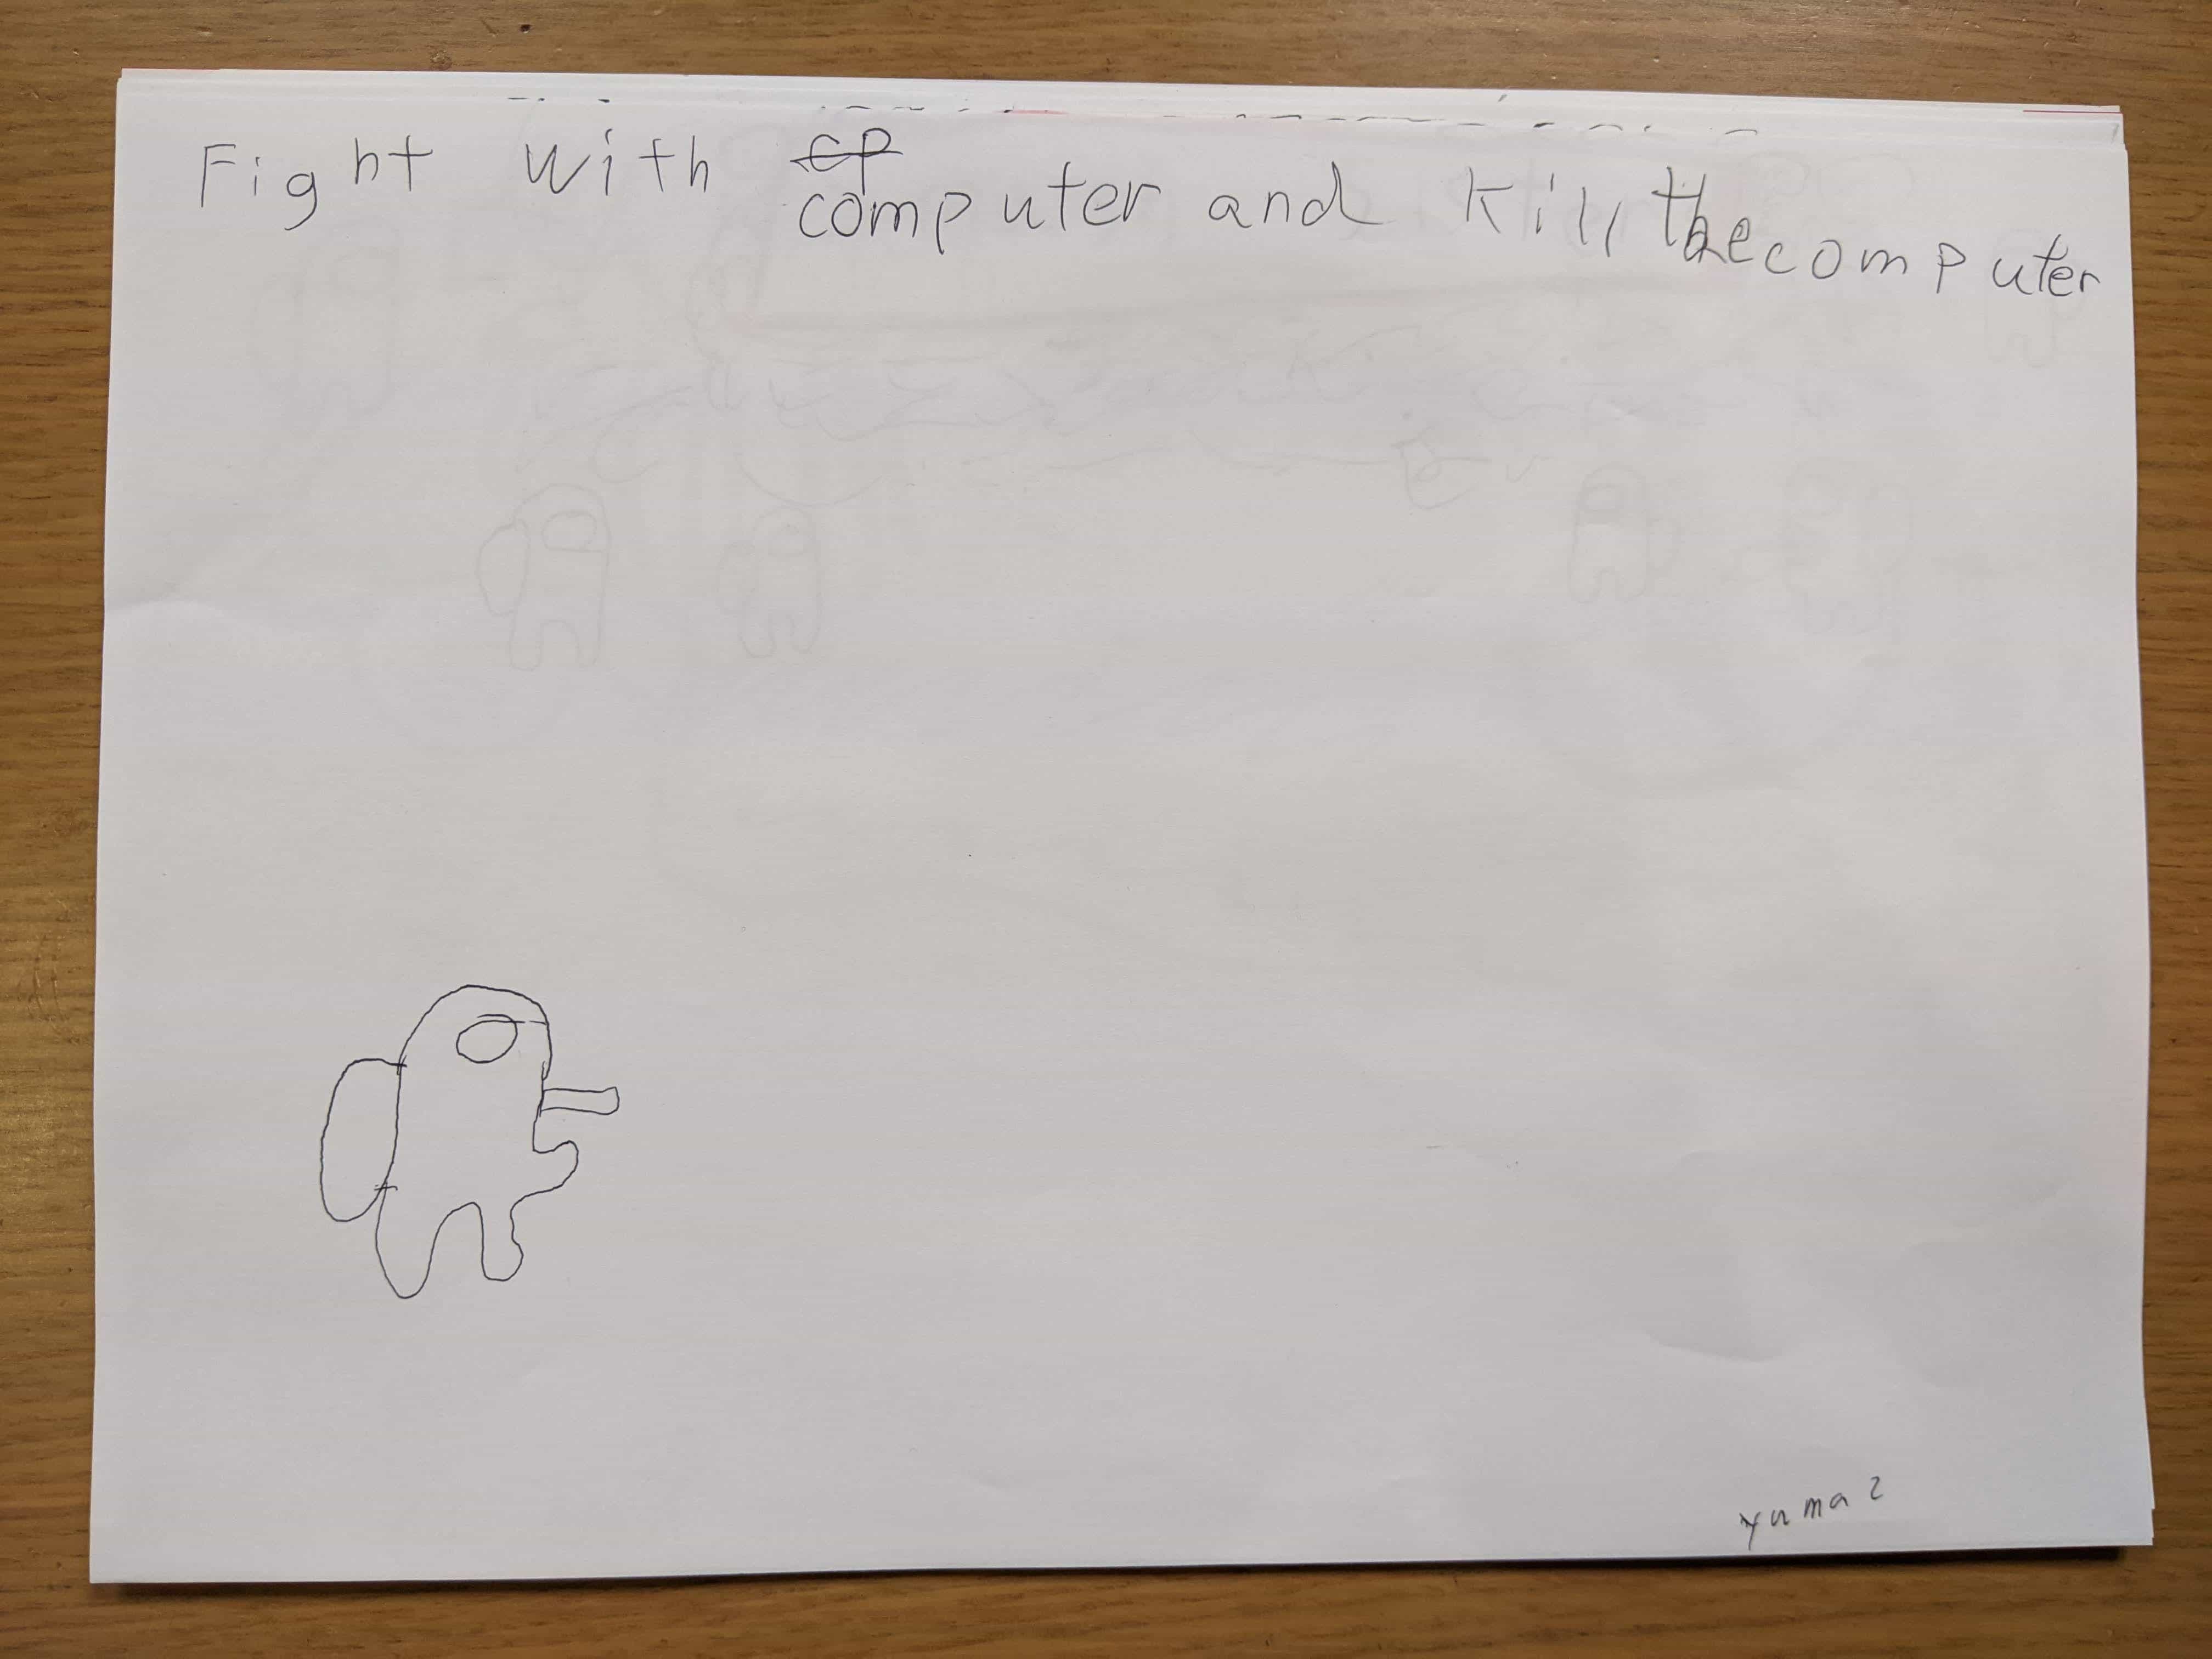 Fight with cp computer and kill the computer
yuma 2